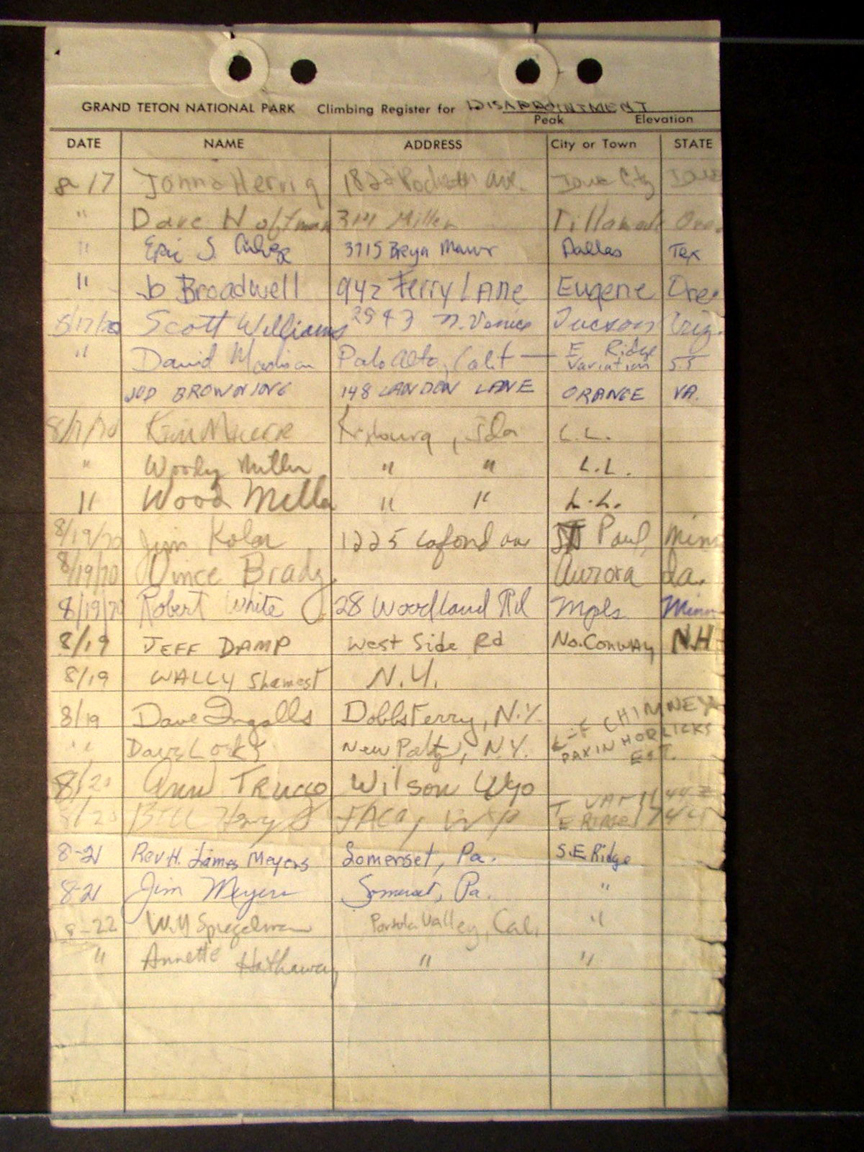 GRAND TETON NATIONAL PARK Climbing Register for DISAPPOINTMENT
Peak Elevation
DATE NAME ADDRESS City or Town STATE
8-17 Jonna Hervig 1822 Ave. Iowa City Iowa
" Dave Hoffman 314 Miller Tillamook Ore.
" Eric S. 3715 Bryn Mawr Dallas Tex
" Jo Broadwell 942 Ferry LANE Eugene Ore
8/17/70 Scott Williams 2843 N. Venice Tucson Ariz.
" David Palo Alto, Calif — E Ridge Variation 5.5
JUD BROWNING 148 LANDON LANE ORANGE VA.
8/17/70 Ida L.L.
" Woody Miller " " L.L.
" Wood Miller " " L.L.
8/19/70 Jim Kolar 1225 Lafond av St Paul, Minn
8/19/70 Vince Brady Aurora Ia.
8/19/70 Robert White 28 Woodland Rd Mpls Minn
8/19 JEFF DAMP West Side Rd No. Conway N.H
8/19 WALLY Shamest N.Y.
8/19 Dave Ingalls Dobbs Ferry, N.Y. L-F CHIMNEY
" Dave New Paltz, N.Y. PAXIN HORLICKS EXT.
8/20 Ann Wilson Wyo
8/20 Bill E RIDGE
8-21 Rev H. James Meyers Somerset, Pa. S.E Ridge
8-21 Jim Meyers Somerset, Pa. "
8-22 Will Spiegelman Portola Valley, Cal. "
" Annette Hathaway " "